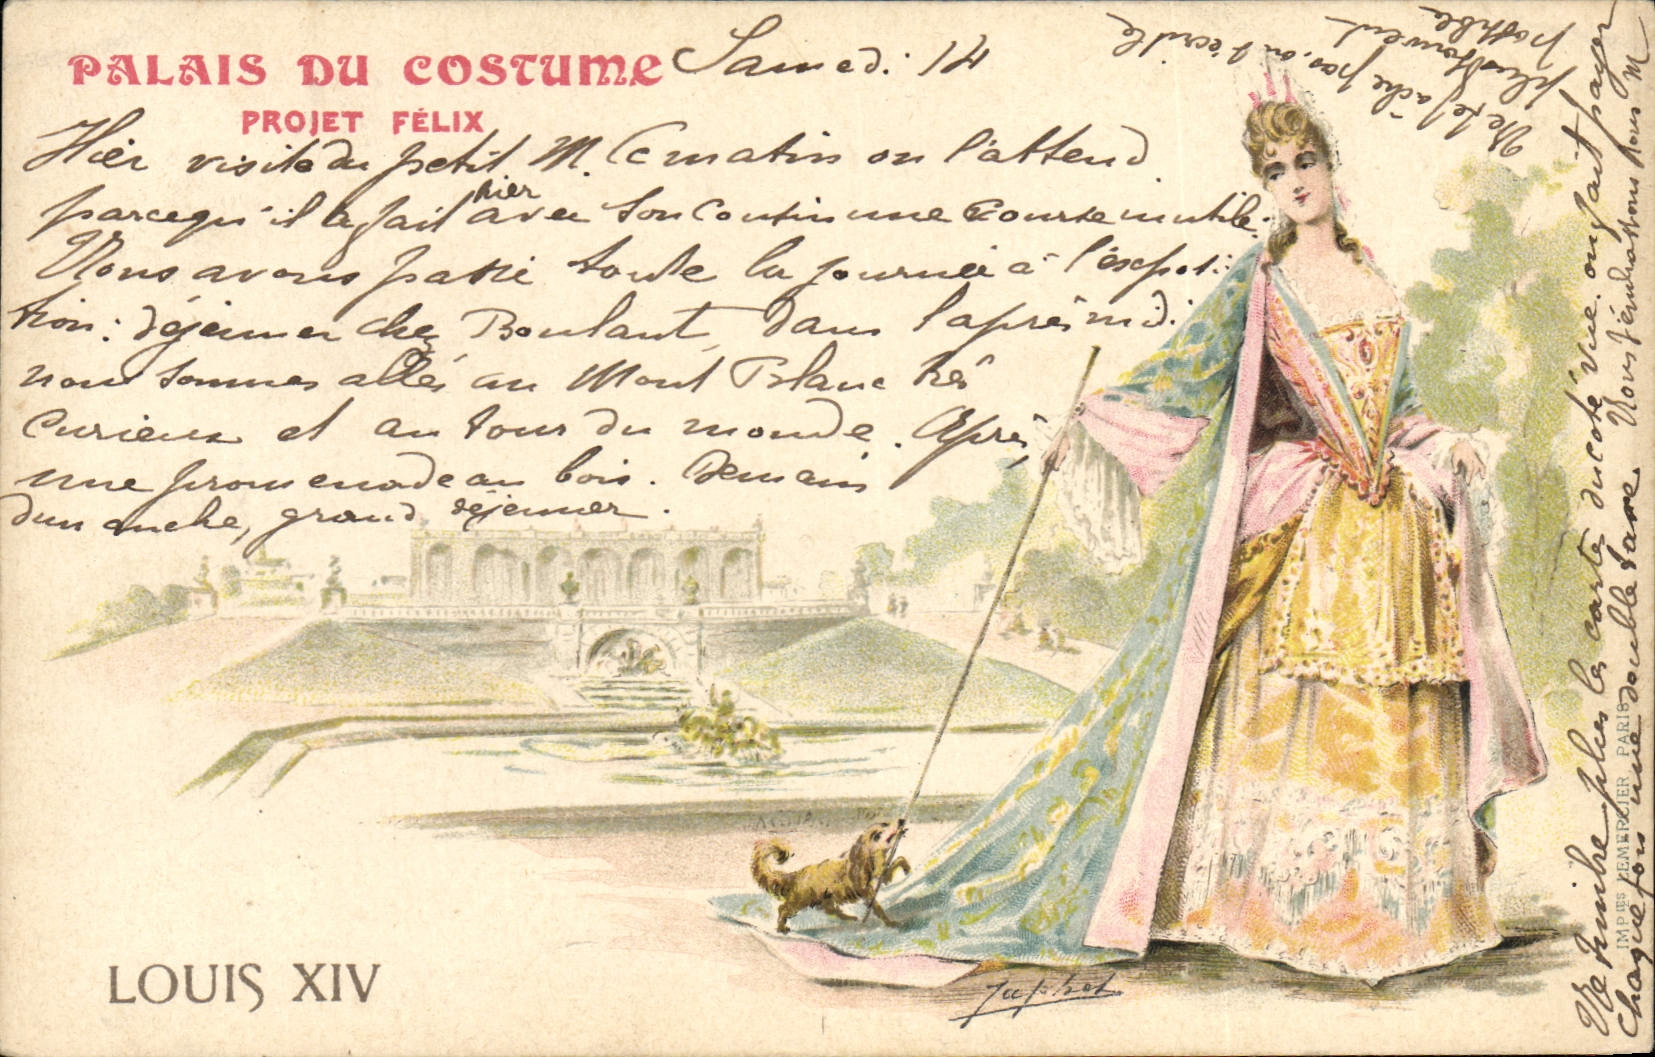 PALAIS DU COSTUME
PROJET FÉLIX
Samedi 14
Hier visite du petit M. Ce matin on l'attend
parce qu'il a fait hier avec son cousin une course inutile.
Nous avons passé toute la journée à l'exposi-
tion: déjeuner chez Boulant, dans l'après midi
nous sommes allés au Mont Blanc très
curieux et au tour du monde. Après
une promenade au bois. Demain
dimanche, grand déjeuner.
LOUIS XIV
Japhet
IMP IES LEMERCIER PARIS
Ne timbre plus les cartes du côté vue on fait payer
chaque fois une double taxe Nous
Ne te fâche pas, on t'écrit le
plus souvent
possible